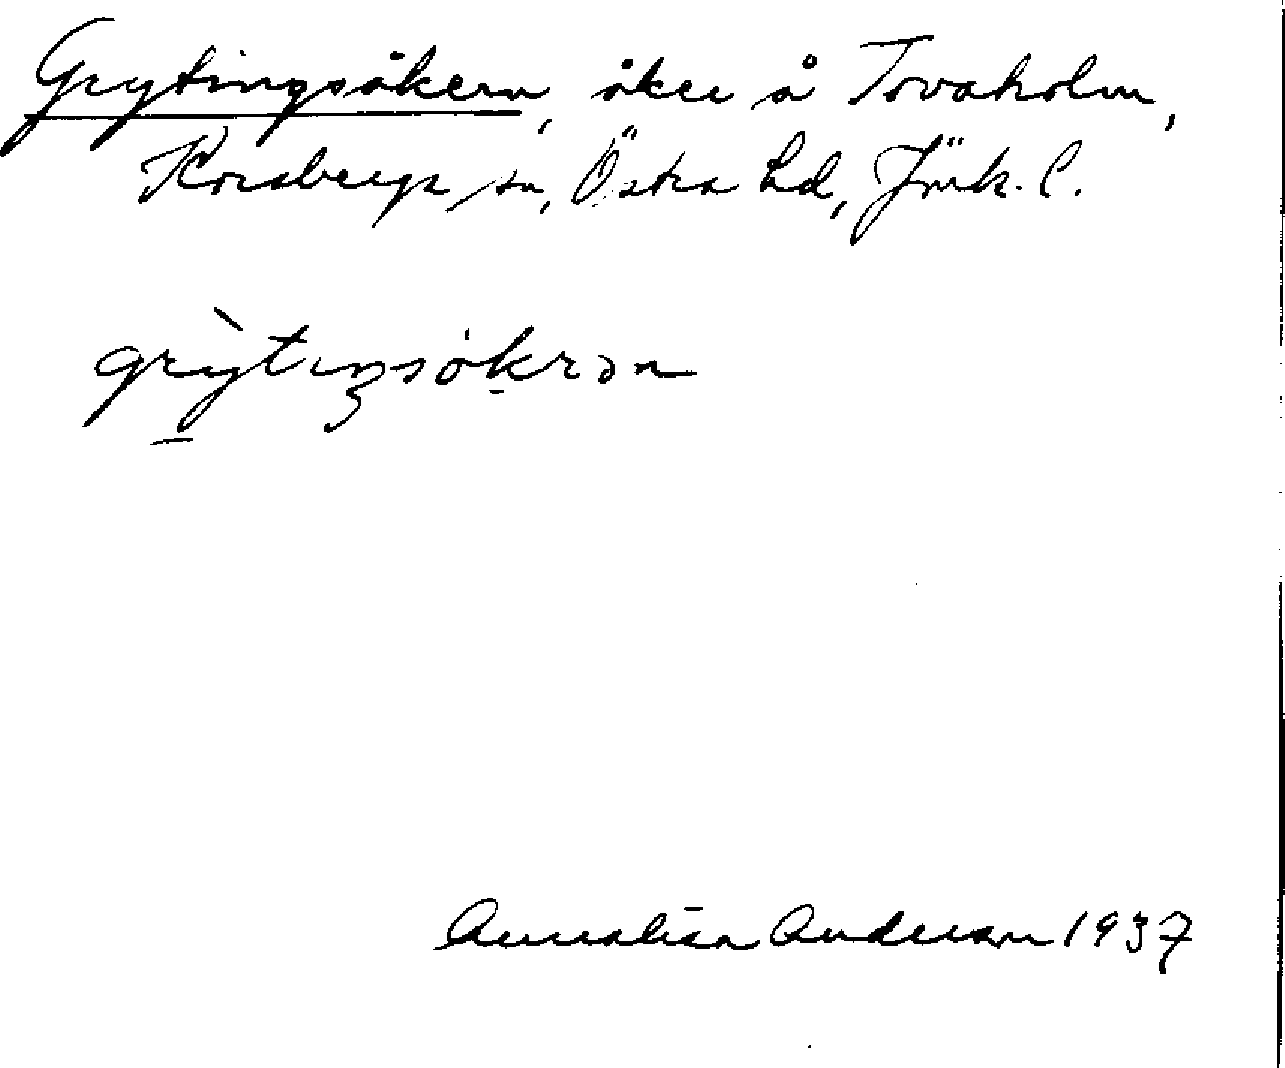 Grytingsåkern, åker å Tovaholm,
Korsberga sn, Östra hd, Jönk. l.
grỳtıŋsȯkrən
Annalisa Anderson 1937